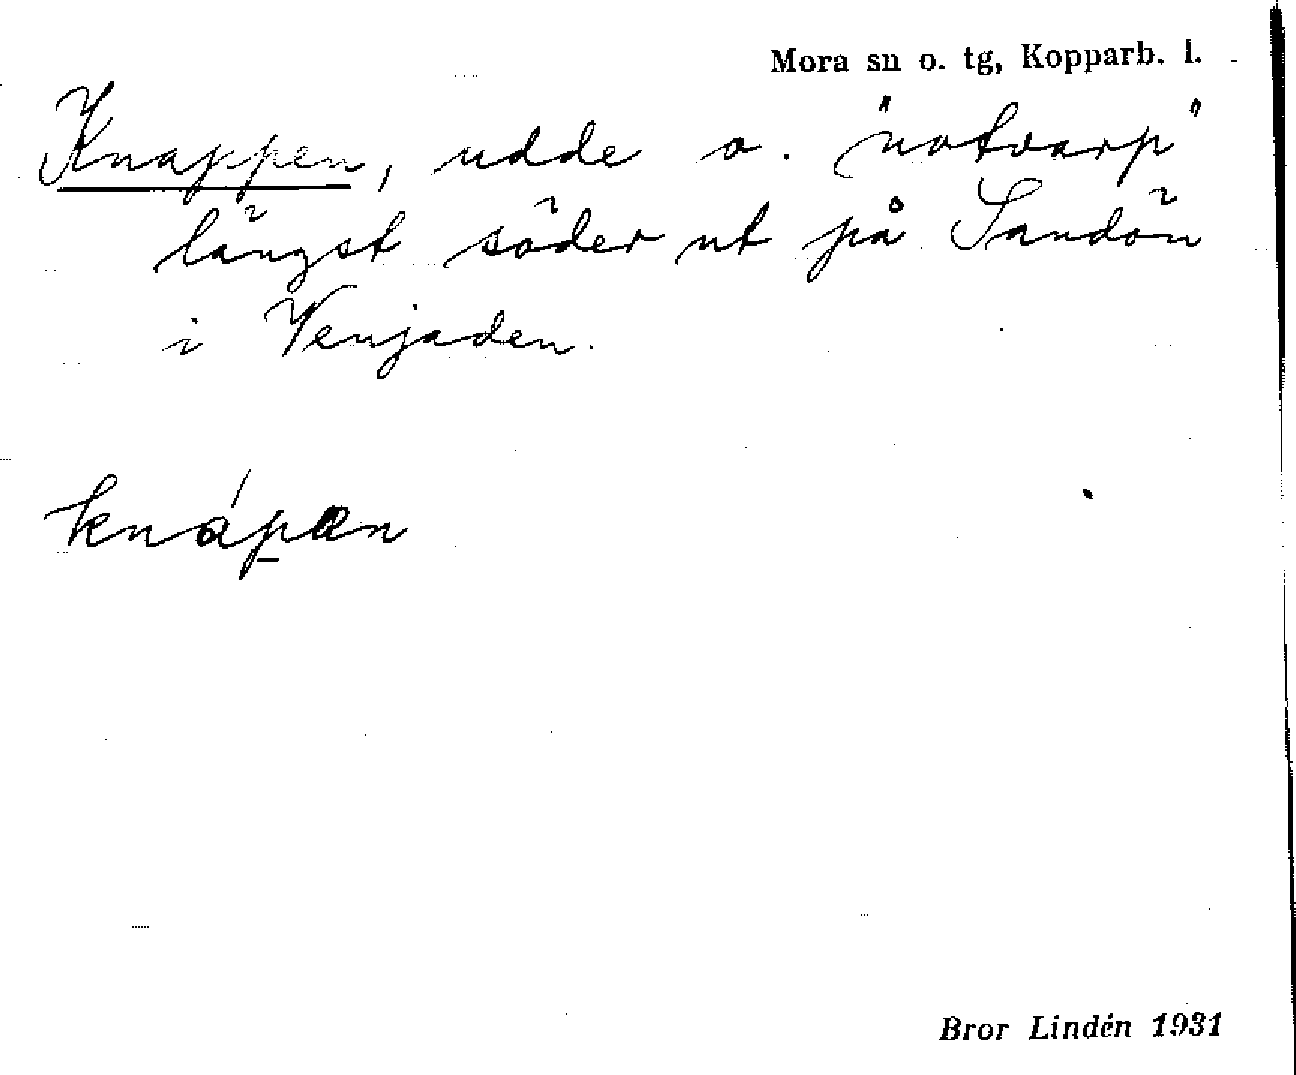 Mora sn o. tg, Kopparb. l.
Knappen, udde o. "notvarp"
längst söder ut på Sandön
i Venjaden.
knápan
Bror Lindén 1931